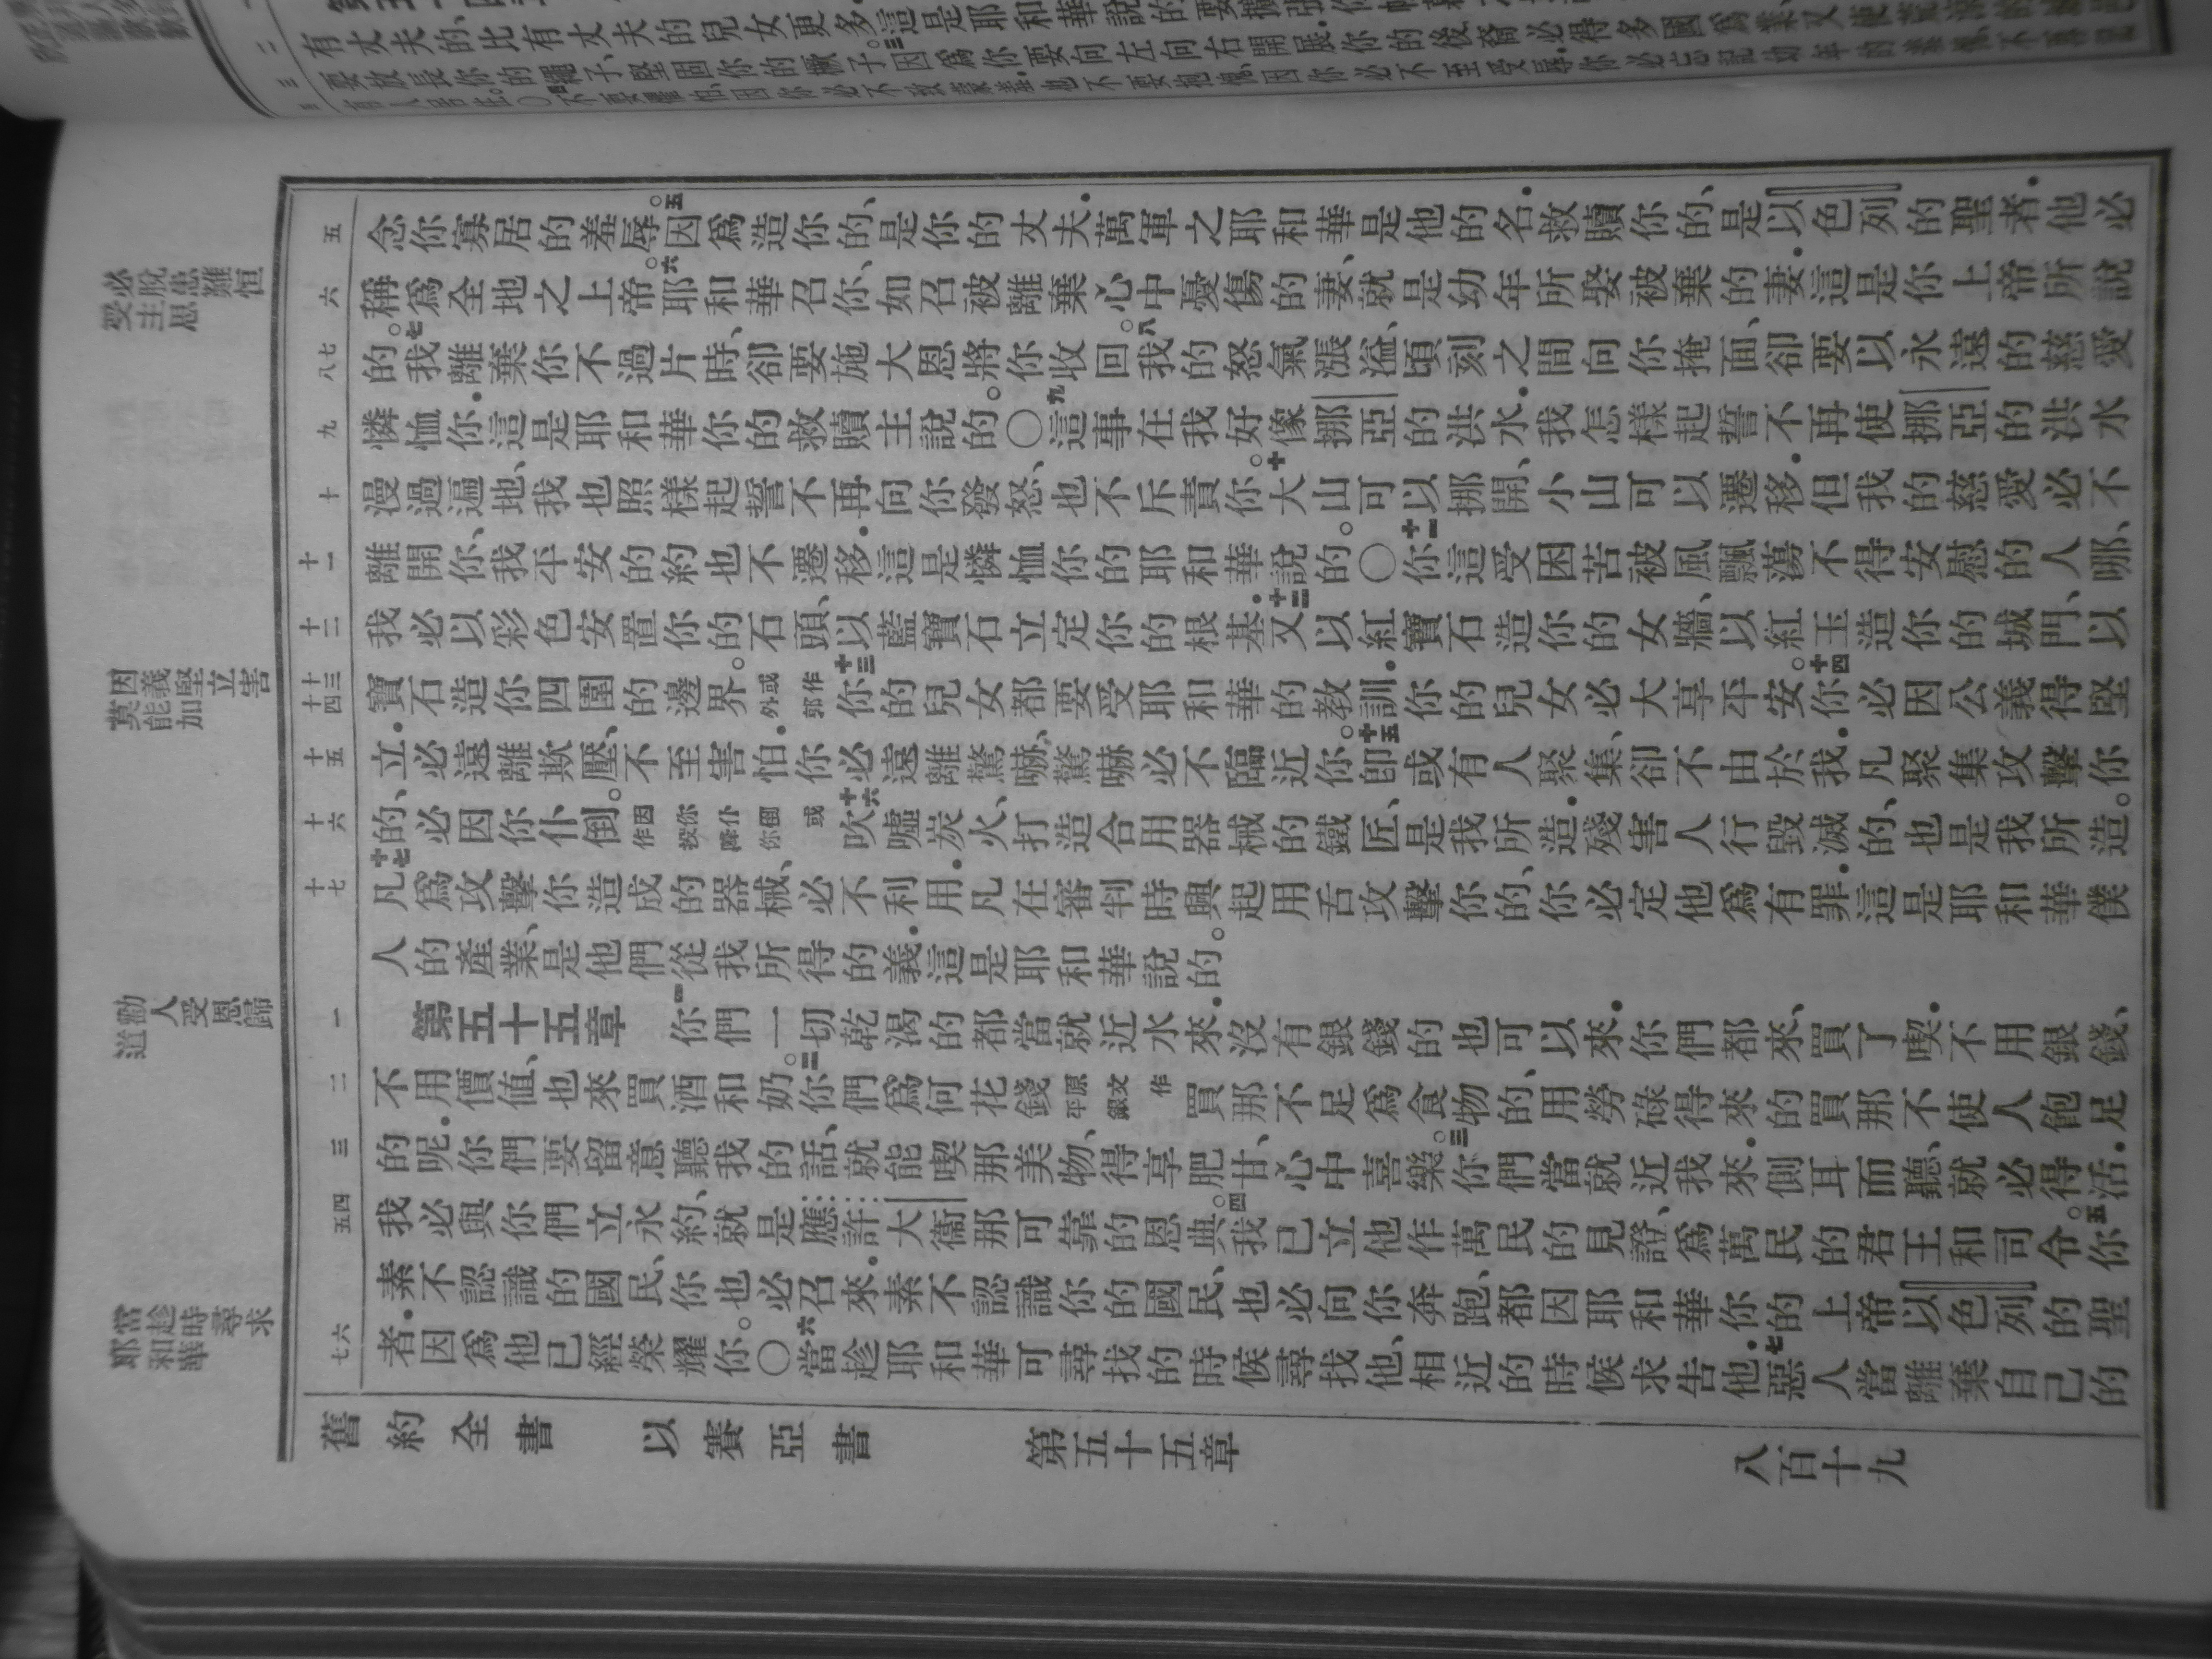 有丈夫的、比有丈夫的兒女更多。這是耶和華說的。
要放長你的繩子、堅固你的橛子。三因爲你要向左向右開展、你的後裔必得多國爲業、又使荒涼的
念你寡居的羞辱。五因爲造你的、是你的丈夫．萬軍之耶和華是他的名．救贖你的、是以色列的聖者．他必
稱爲全地之上帝。六耶和華召你、如召被離棄心中憂傷的妻、就是幼年所娶被棄的妻．這是你上帝所說
的。七我離棄你不過片時、卻要施大恩將你收回。八我的怒氣漲溢、頃刻之間向你掩面、卻要以永遠的慈愛
憐恤你．這是耶和華你的救贖主說的。〇九這事在我好像挪亞的洪水．我怎樣起誓不再使挪亞的洪水
漫過遍地、我也照樣起誓不再向你發怒、也不斥責你。十大山可以挪開、小山可以遷移．但我的慈愛必不
離開你、我平安的約也不遷移．這是憐恤你的耶和華說的。〇十一你這受困苦被風飄蕩不得安慰的人哪、
我必以彩色安置你的石頭、以藍寶石立定你的根基．十二又以紅寶石造你的女牆、以紅玉造你的城門、以
寶石造你四圍的邊界。或作外郭十三你的兒女都要受耶和華的教訓．你的兒女必大享平安。十四你必因公義得堅
立．必遠離欺壓、不至害怕．你必遠離驚嚇、驚嚇必不臨近你。十五卽或有人聚集、卻不由於我．凡聚集攻擊你
的、必因你仆倒。或作因你仆倒投降你十六吹噓炭火、打造合用器械的鐵匠、是我所造．殘害人行毀滅的、也是我所造。
十七凡爲攻擊你造成的器械、必不利用．凡在審判時興起用舌攻擊你的、你必定他爲有罪．這是耶和華僕
人的產業、是他們從我所得的義．這是耶和華說的。
第五十五章　一你們一切乾渴的都當就近水來．沒有銀錢的也可以來．你們都來、買了喫．不用銀錢、
不用價值、也來買酒和奶。二你們爲何花錢原文作平銀買那不足爲食物的、用勞碌得來的買那不使人飽足
的呢．你們要留意聽我的話、就能喫那美物、得享肥甘、心中喜樂。三你們當就近我來．側耳而聽、就必得活．
我必與你們立永約、就是應許大衞那可靠的恩典。四我已立他作萬民的見證、爲萬民的君王和司令。五你
素不認識的國民、你也必召來．素不認識你的國民、也必向你奔跑、都因耶和華你的上帝以色列的聖
者．因爲他已經榮耀你。〇六當趁耶和華可尋找的時候尋找他、相近的時候求告他．七惡人當離棄自己的
舊約全書　以賽亞書　第五十五章　八百十九
必脫患難恒
受主恩
因義堅立
莫能加害
勸人受恩歸
道
當趁時尋求
耶和華